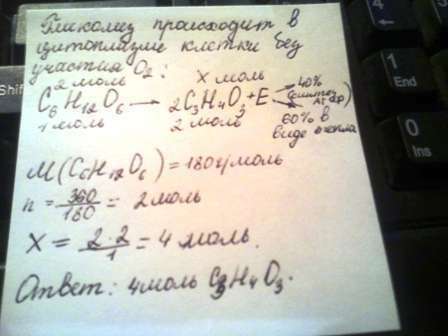 Гликолиз происходит в
цитоплазме клетки без
участия O₂:
2 моль X моль
C₆H₁₂O₆ → 2C₃H₄O₃ + E → 40%
1 моль 2 моль 60% в
виде тепла
M(C₆H₁₂O₆) = 180 г/моль
n = 360/180 = 2 моль
X = 2·2/1 = 4 моль.
Ответ: 4 моль C₃H₄O₃.
Shift
4
1
End
0
Ins